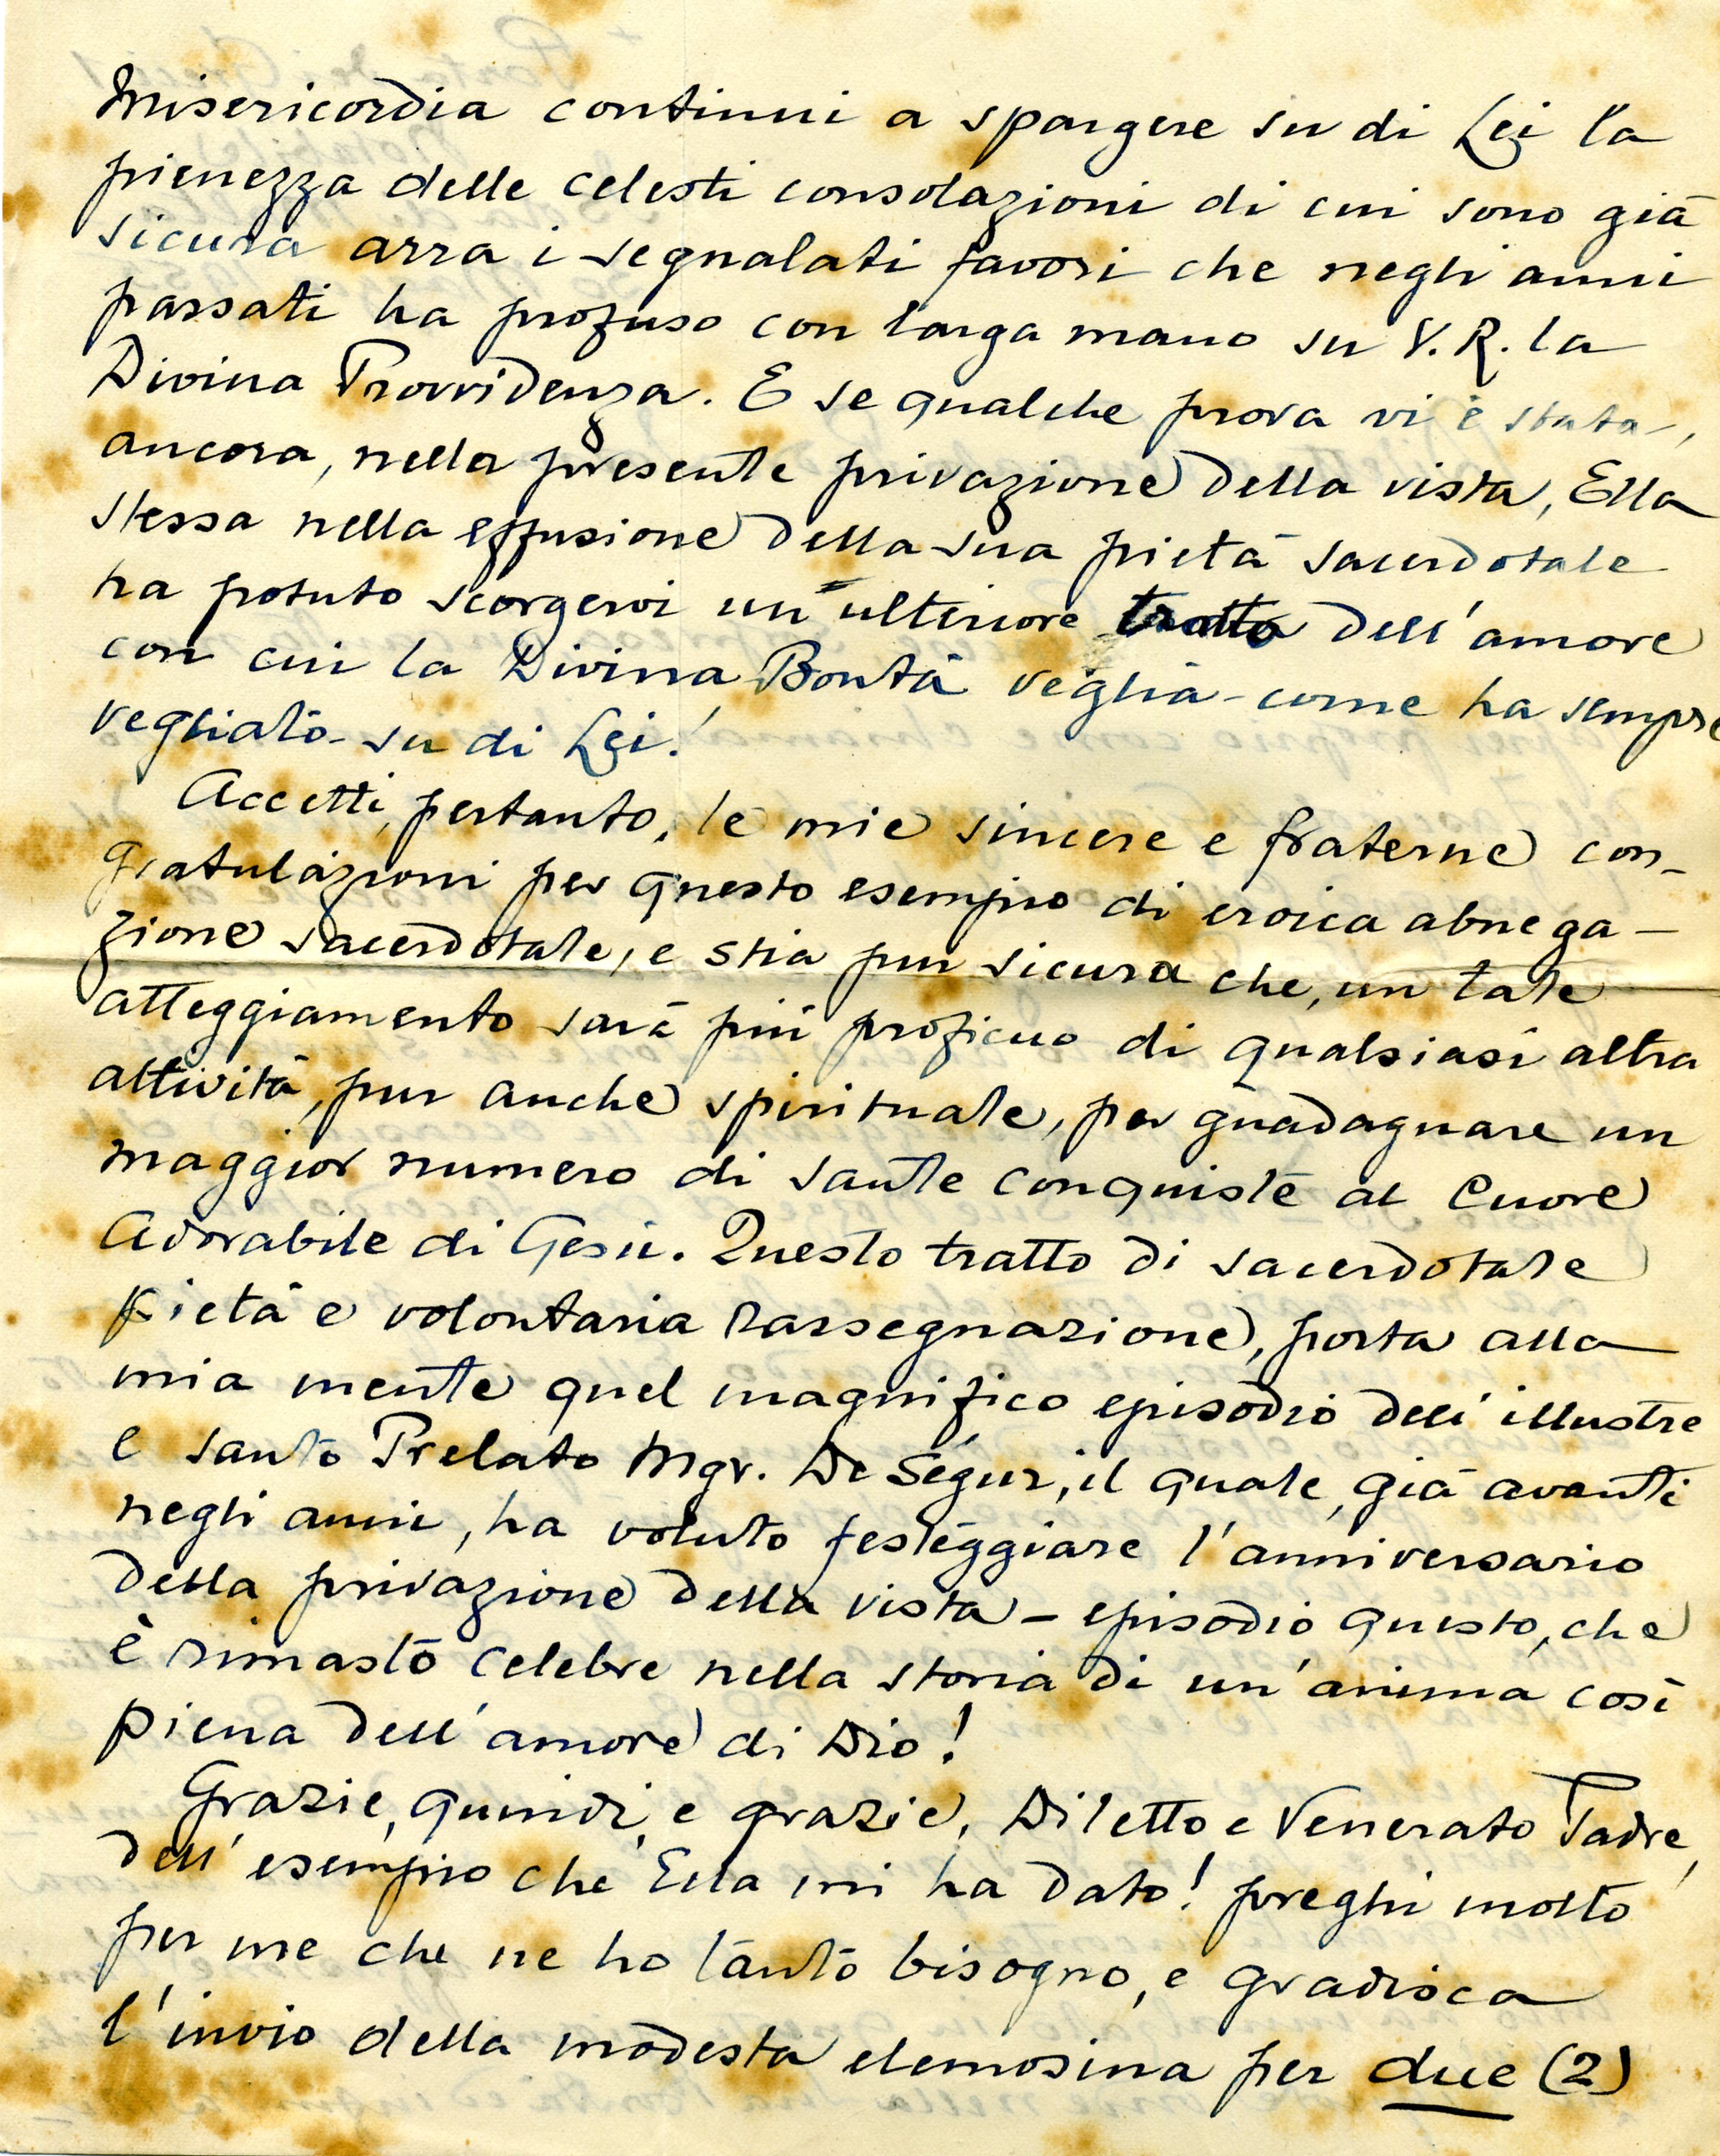 Misericordia continui a spargere su di Lei la
pienezza delle celesti consolazioni di cui sono già
sicura arra i segnalati favori che negli anni
passati ha profuso con larga mano su V. R. la
Divina Provvidenza. E se qualche prova vi è stata,
ancora, nella presente privazione della vista, Ella
stessa nella effusione della sua pietà sacerdotale
ha potuto scorgervi un ulteriore tratto dell'amore
con cui la Divina Bontà veglia - come ha sempre
vegliato - su di Lei!
Accetti, pertanto, le mie sincere e fraterne con-
gratulazioni per questo esempio di eroica abnega-
zione sacerdotale, e stia pur sicura che, un tale
atteggiamento sarà più proficuo di qualsiasi altra
attività, pur anche spirituale, per guadagnare un
maggior numero di sante conquiste al Cuore
Adorabile di Gesù. Questo tratto di sacerdotale
pietà e volontaria rassegnazione, porta alla
mia mente quel magnifico episodio dell'illustre
e santo Prelato Mgr. De Ségur, il quale, già avanti
negli anni, ha voluto festeggiare l'anniversario
della privazione della vista - episodio questo, che
è rimasto celebre nella storia di un'anima così
piena dell'amore di Dio!
Grazie, quindi, e grazie, Diletto e Venerato Padre,
dell'esempio che Ella mi ha dato! preghi molto
per me che ne ho tanto bisogno, e gradisca
l'invio della modesta elemosina per due (2)